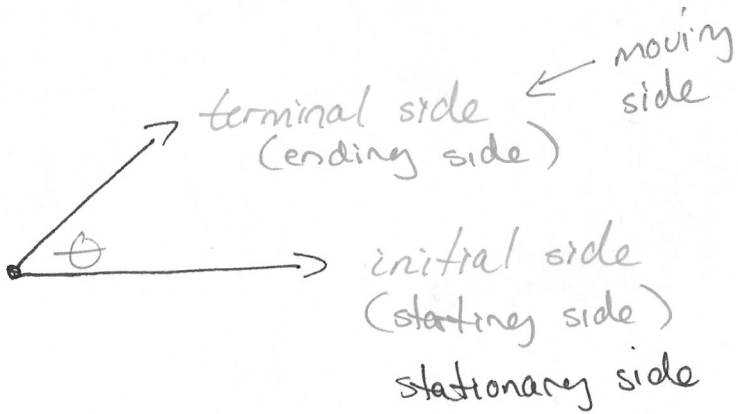 moving
side
terminal side
(ending side)
θ
initial side
(starting side)
stationary side